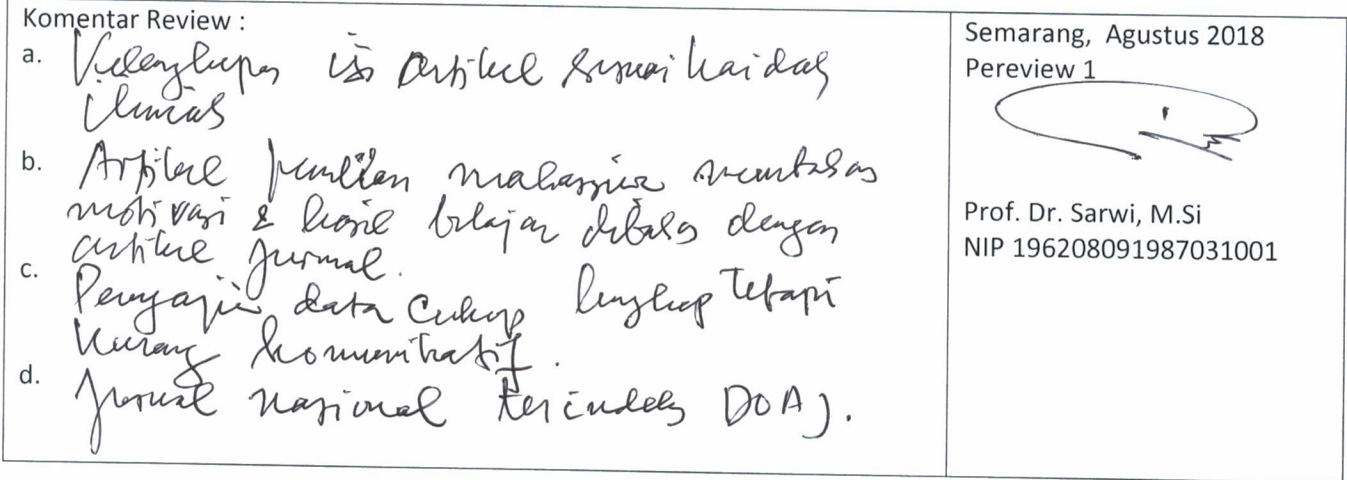 Komentar Review :
a. Kelengkapan isi artikel sesuai kaidah
ilmiah
b. Artikel penelitian mahasiswa membahas
motivasi & hasil belajar dibahas dengan
artikel jurnal.
c. Penyajian data cukup lengkap tetapi
kurang komunikatif.
d. Jurnal nasional terindeks DOAJ.
Semarang, Agustus 2018
Pereview 1
Prof. Dr. Sarwi, M.Si
NIP 196208091987031001